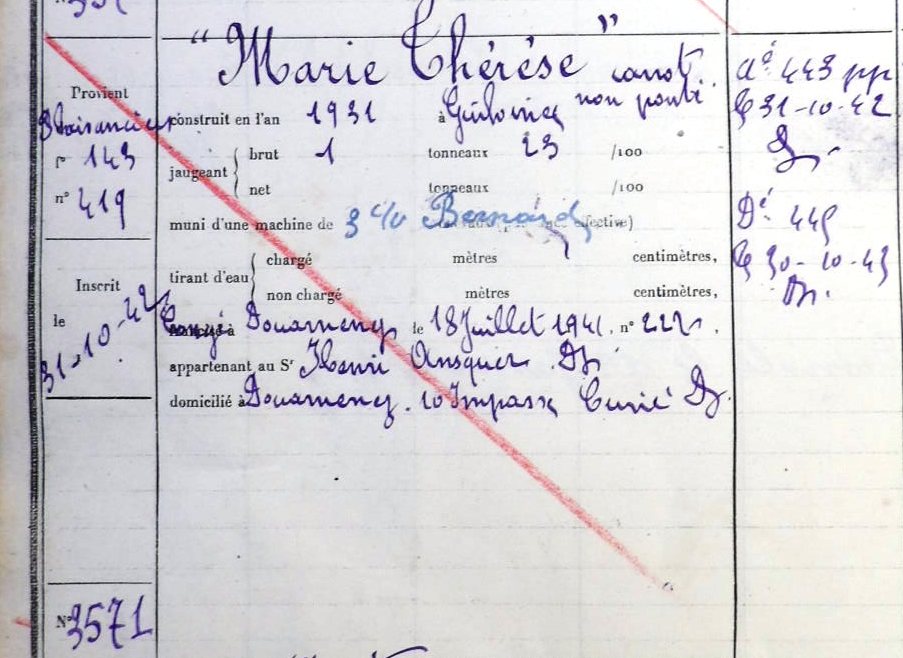 "Marie Thérèse" canot
non ponté
Provient
Plaisancier
f° 143
n° 419
construit en l'an 1931 à Guilvinec
jaugeant { brut 1 tonneaux 23 /100
net tonneaux /100
muni d'une machine de 3 c/v Bernard effective)
tirant d'eau { chargé mètres centimètres,
non chargé mètres centimètres,
Inscrit
le
31-10-42
Congé à Douarnenez le 18 Juillet 1941. n° 222.
appartenant au Sr Henri Ansquer. Dz
domicilié à Douarnenez. 10 Impasse Curie Dz.
N° 3571
443 pp
le 31-10-42
Dé 445
le 30-10-43